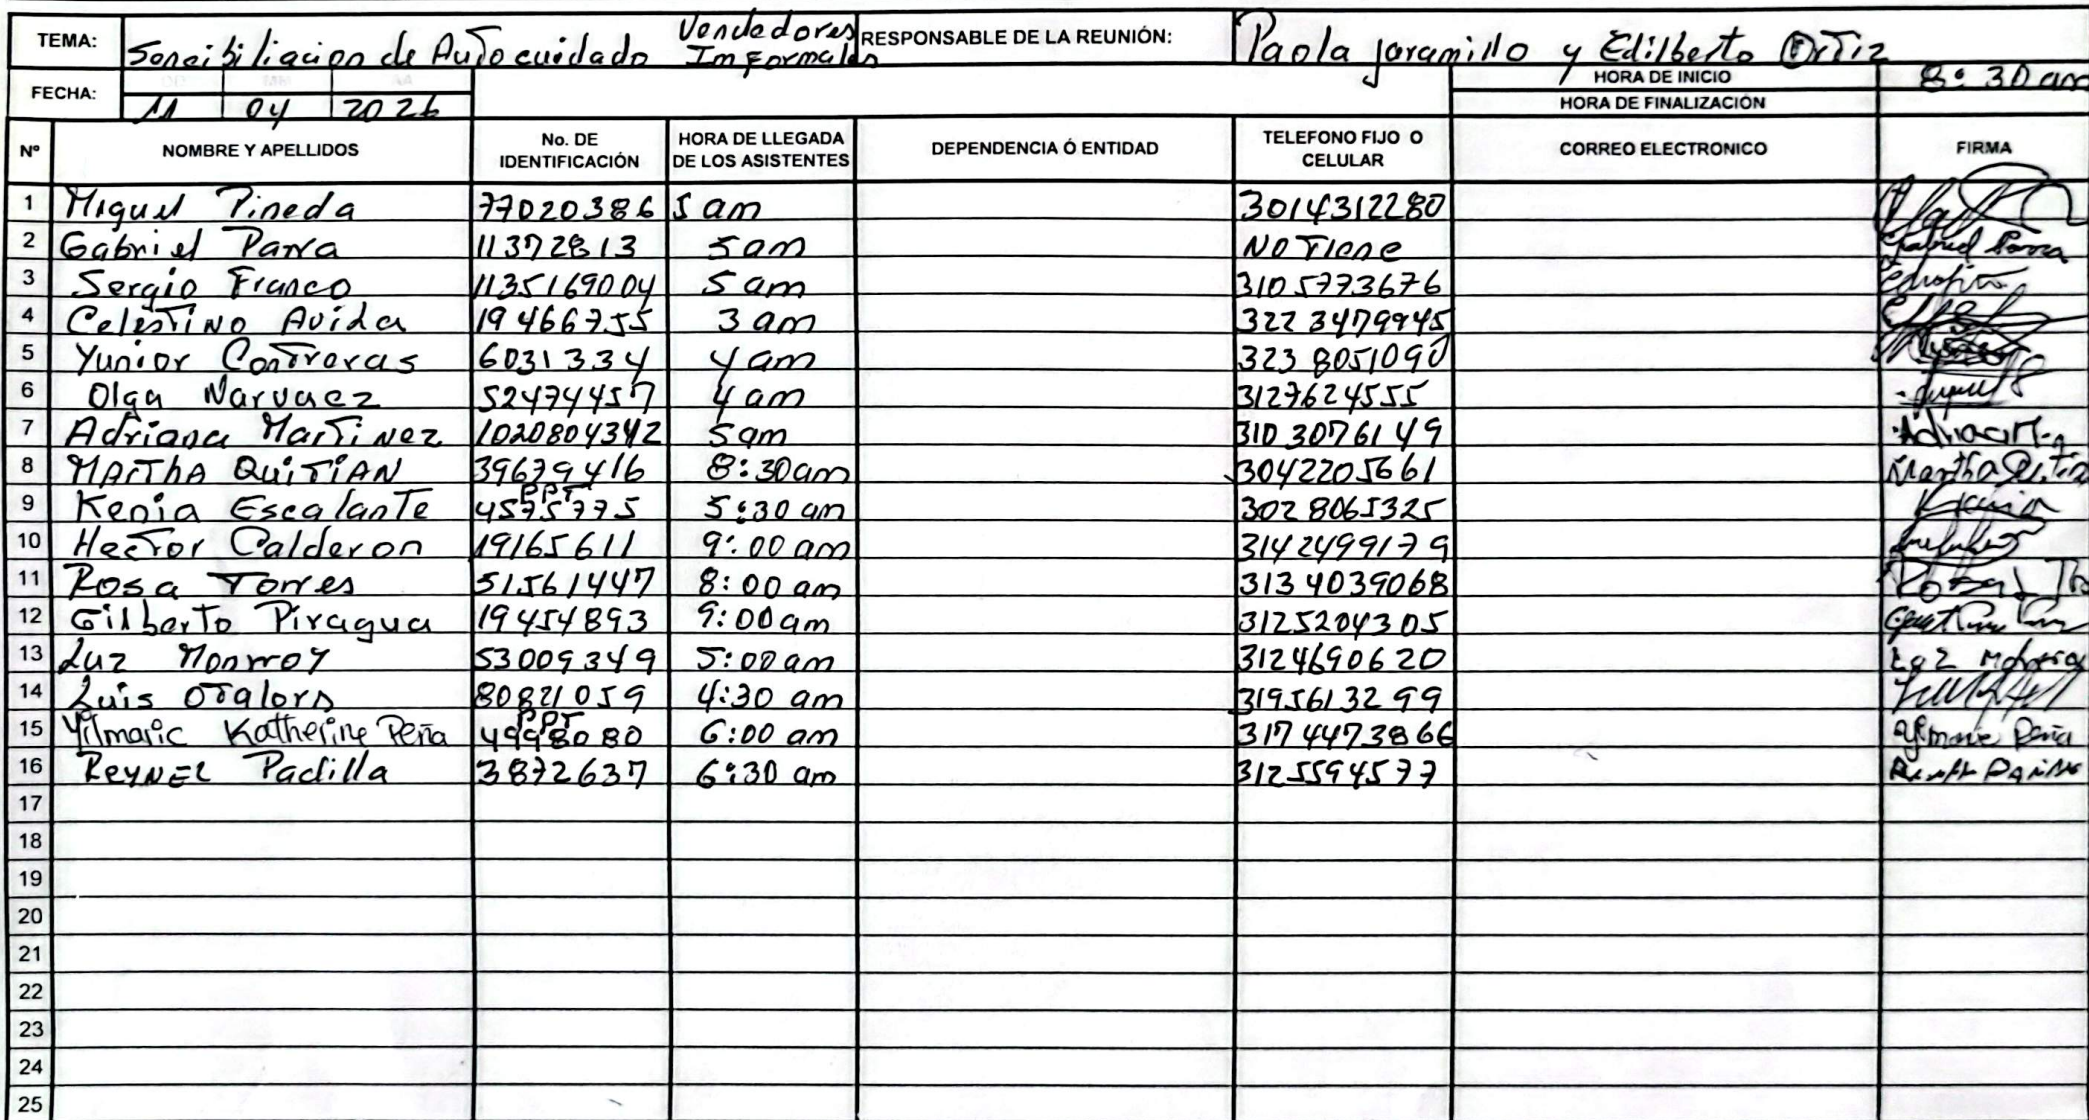 TEMA: Sensibiliacion de Autocuidado Vendedores Informales RESPONSABLE DE LA REUNIÓN: Paola Jaramillo y Edilberto Ortiz
FECHA: 11 04 2026 HORA DE INICIO 8:30 am
HORA DE FINALIZACIÓN
Nº NOMBRE Y APELLIDOS No. DE IDENTIFICACIÓN HORA DE LLEGADA DE LOS ASISTENTES DEPENDENCIA Ó ENTIDAD TELEFONO FIJO O CELULAR CORREO ELECTRONICO FIRMA
1 Miguel Pineda 77020386 5 am 3014312280
2 Gabriel Parra 11372813 5 am NO Tiene Gabriel Parra
3 Sergio Franco 1135169004 5 am 3105773676
4 Celestino Avida 19466755 3 am 3223479945
5 Yunior Contreras 6031334 4 am 3238051090
6 Olga Narvaez 52474457 4 am 3127624555
7 Adriana Martinez 1020804342 5 am 3103076149
8 MARThA QuiTiAN 39679416 8:30 am 3042205661 Martha
9 Kenia Escalante PPT 4575775 5:30 am 3028065325 Kenia
10 Hector Calderon 19165611 9:00 am 3142499179
11 Rosa Torres 51561447 8:00 am 3134039068
12 Gilberto Piragua 19454893 9:00 am 3125204305
13 Luz Monrroy 53009349 5:00 am 3124690620 Luz
14 Luis Otalora 80821059 4:30 am 3195613299
15 Yilmaric Katherine Peña PPT 4998080 6:00 am 3174473866 Peña
16 Reynel Padilla 3872637 6:30 am 3125594577
17
18
19
20
21
22
23
24
25